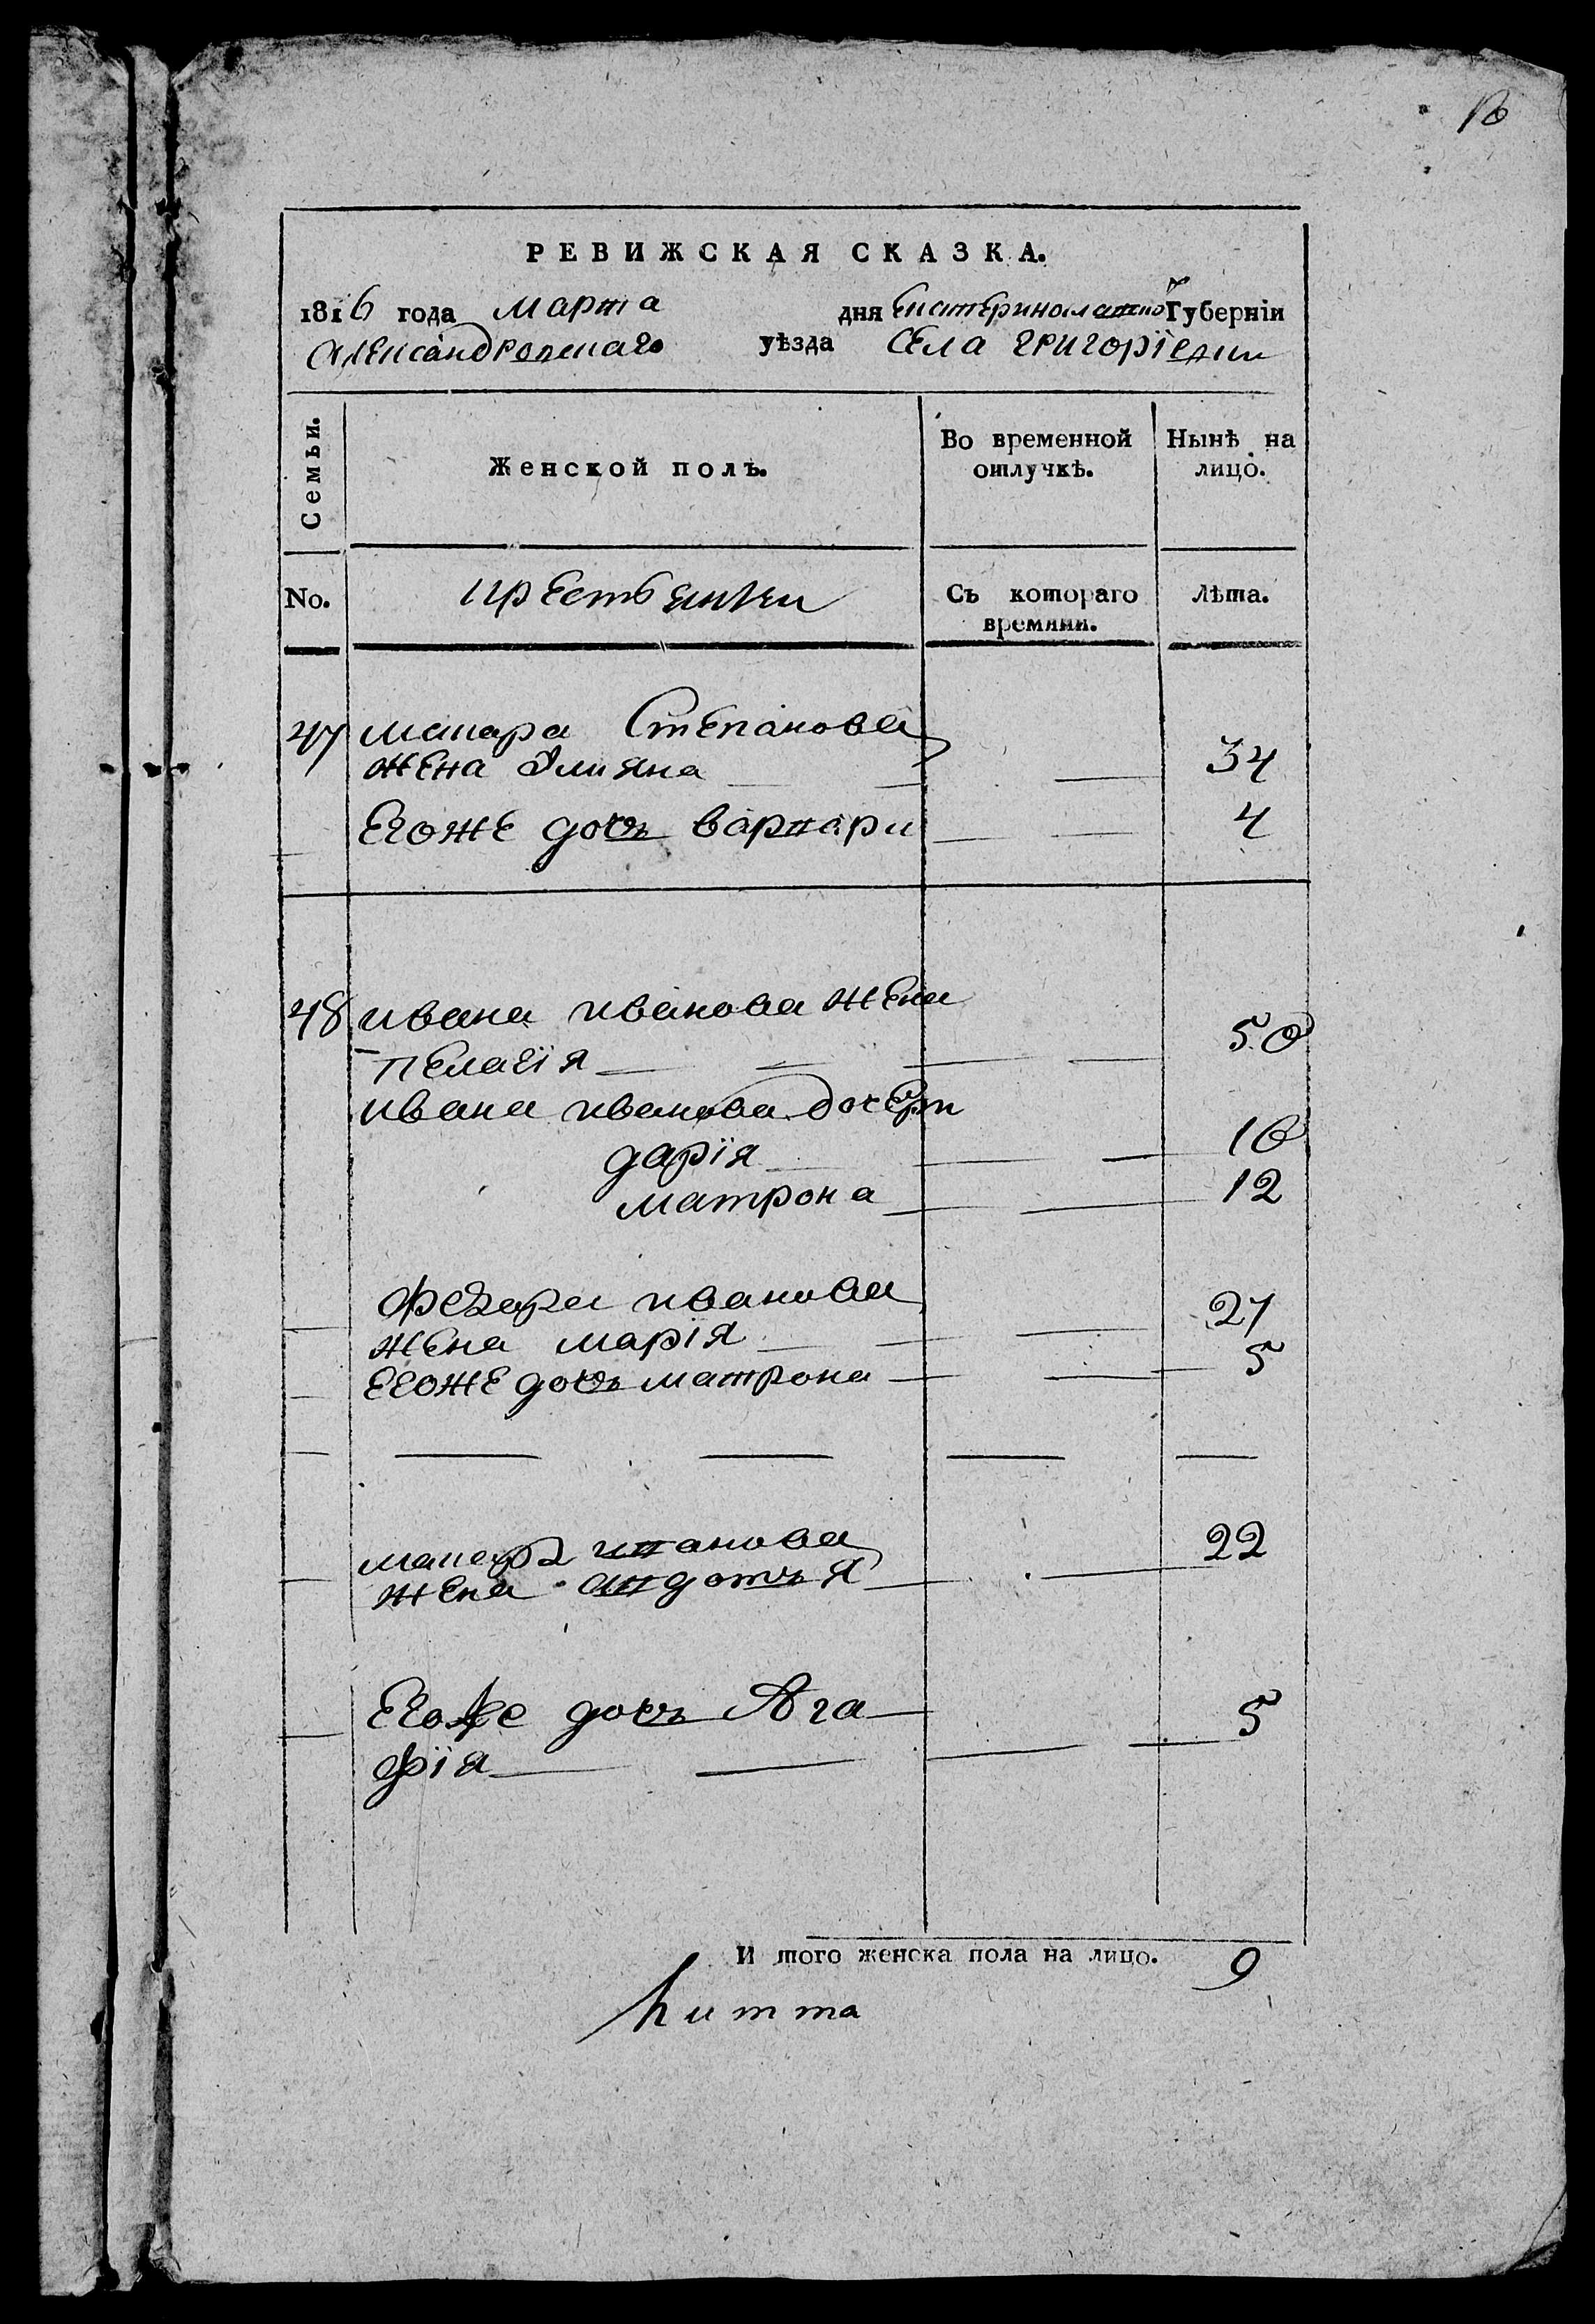 РЕВИЖСКАЯ СКАЗКА.
1816 года Марта дня Екатеринославской Губерніи
Александровскаго уѣзда Села Григорїевки
Семьи. Женской полъ. Во временной отлучкѣ. Нынѣ на лицо.
No. крестьянки Съ котораго времяни. Лѣта.
47 макара Степанова
жена Улияна 34
Егоже дочь варвара 4
48 ивана иванова жена
пелагїя 50
ивана иванова дочери
дарїя 16
матрона 12
Федора иванова 27
жена марїя
Егоже дочь матрона 5
макара иванова 22
жена авдотья
Егоже дочь Ага 5
фїя
И того женска пола на лицо. 9